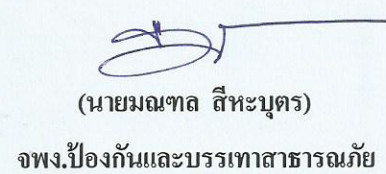 (นายมณฑล สีหะบุตร)
จพง.ป้องกันและบรรเทาสาธารณภัย